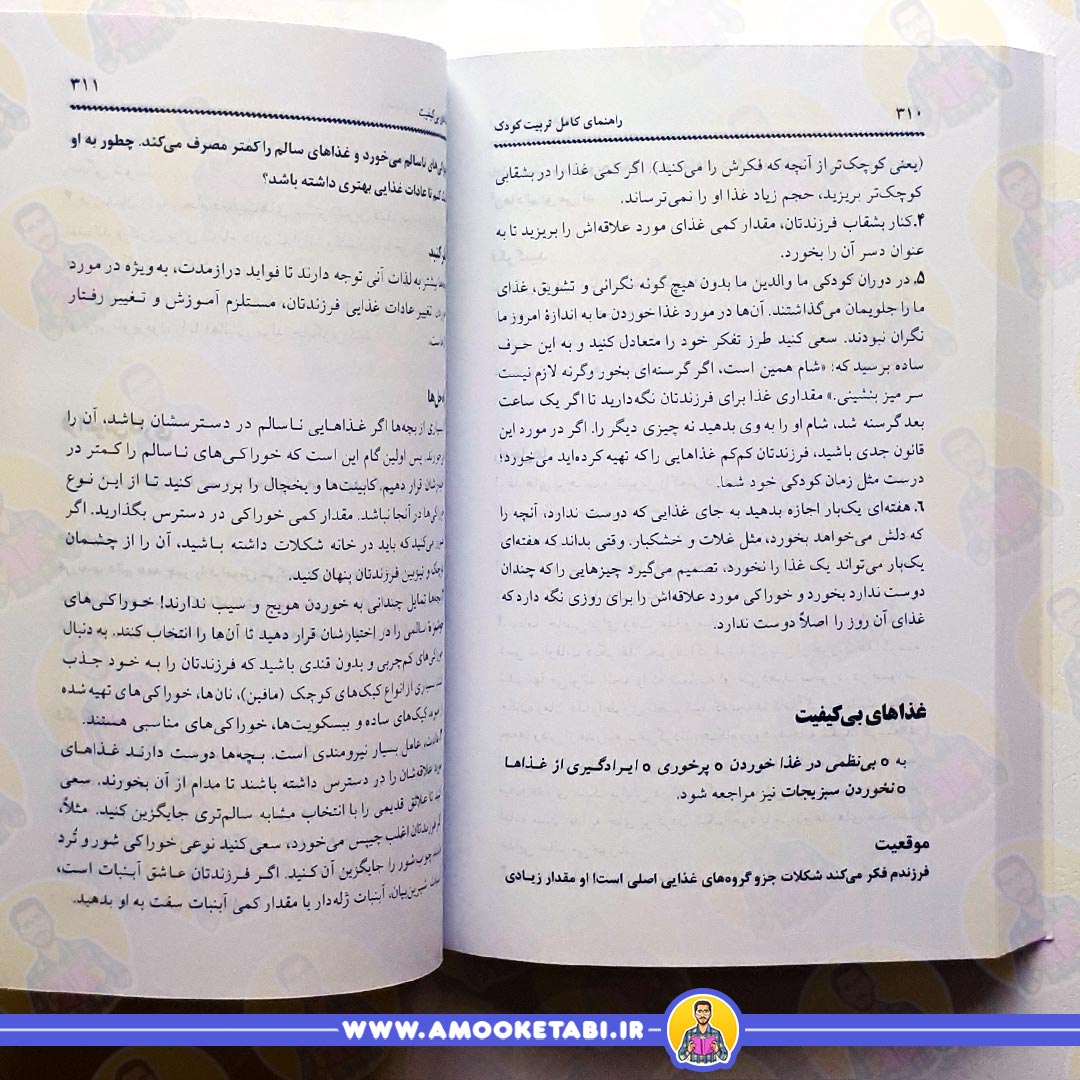 ۳۱۰
راهنمای کامل تربیت کودک
(یعنی کوچک‌تر از آنچه که فکرش را می‌کنید). اگر کمی غذا را در بشقابی
کوچک‌تر بریزید، حجم زیاد غذا او را نمی‌ترساند.
۴.کنار بشقاب فرزندتان، مقدار کمی غذای مورد علاقه‌اش را بریزید تا به
عنوان دسر آن را بخورد.
۵. در دوران کودکی ما والدین ما بدون هیچ گونه نگرانی و تشویق، غذای
ما را جلویمان می‌گذاشتند. آن‌ها در مورد غذا خوردن ما به اندازهٔ امروز ما
نگران نبودند. سعی کنید طرز تفکر خود را متعادل کنید و به این حرف
ساده برسید که: «شام همین است، اگر گرسنه‌ای بخور وگرنه لازم نیست
سر میز بنشینی.» مقداری غذا برای فرزندتان نگه‌دارید تا اگر یک ساعت
بعد گرسنه شد، شام او را به وی بدهید نه چیزی دیگر را. اگر در مورد این
قانون جدی باشید، فرزندتان کم‌کم غذاهایی را که تهیه کرده‌اید می‌خورد؛
درست مثل زمان کودکی خود شما.
۶. هفته‌ای یک‌بار اجازه بدهید به جای غذایی که دوست ندارد، آنچه را
که دلش می‌خواهد بخورد، مثل غلات و خشکبار. وقتی بداند که هفته‌ای
یک‌بار می‌تواند یک غذا را نخورد، تصمیم می‌گیرد چیزهایی را که چندان
دوست ندارد بخورد و خوراکی مورد علاقه‌اش را برای روزی نگه دارد که
غذای آن روز را اصلاً دوست ندارد.
غذاهای بی‌کیفیت
به ○ بی‌نظمی در غذا خوردن ○ پرخوری ○ ایرادگیری از غذاها
○ نخوردن سبزیجات نیز مراجعه شود.
موقعیت
فرزندم فکر می‌کند شکلات جزو گروه‌های غذایی اصلی است! او مقدار زیادی
۳۱۱
بی‌کیفیت
ناسالم می‌خورد و غذاهای سالم را کمتر مصرف می‌کند. چطور به او
کنم تا عادات غذایی بهتری داشته باشد؟
کنید
بیشتر به لذات آنی توجه دارند تا فواید درازمدت، به‌ویژه در مورد
تغییر عادات غذایی فرزندتان، مستلزم آموزش و تغییر رفتار
است.
از بچه‌ها اگر غذاهایی ناسالم در دسترسشان باشد، آن را
پس اولین گام این است که خوراکی‌های ناسالم را کمتر در
قرار دهیم. کابینت‌ها و یخچال را بررسی کنید تا از این نوع
در آنجا نباشد. مقدار کمی خوراکی در دسترس بگذارید. اگر
می‌کنید که باید در خانه شکلات داشته باشید، آن را از چشمان
و تیزبین فرزندتان پنهان کنید.
تمایل چندانی به خوردن هویج و سیب ندارند! خوراکی‌های
سالمی را در اختیارشان قرار دهید تا آن‌ها را انتخاب کنند. به دنبال
کم‌چربی و بدون قندی باشید که فرزندتان را به خود جذب
بسیاری از انواع کیک‌های کوچک (مافین)، نان‌ها، خوراکی‌های تهیه شده
کیک‌های ساده و بیسکویت‌ها، خوراکی‌های مناسبی هستند.
عادت، عامل بسیار نیرومندی است. بچه‌ها دوست دارند غذاهای
علاقه‌شان را در دسترس داشته باشند تا مدام از آن بخورند. سعی
تا علائق قدیمی را با انتخاب مشابه سالم‌تری جایگزین کنید. مثلاً،
فرزندتان اغلب چیپس می‌خورد، سعی کنید نوعی خوراکی شور و تُرد
چوب‌شور را جایگزین آن کنید. اگر فرزندتان عاشق آبنبات است،
شیرین‌بیان، آبنبات ژله‌دار یا مقدار کمی آبنبات سفت به او بدهید.
WWW.AMOOKETABI.IR